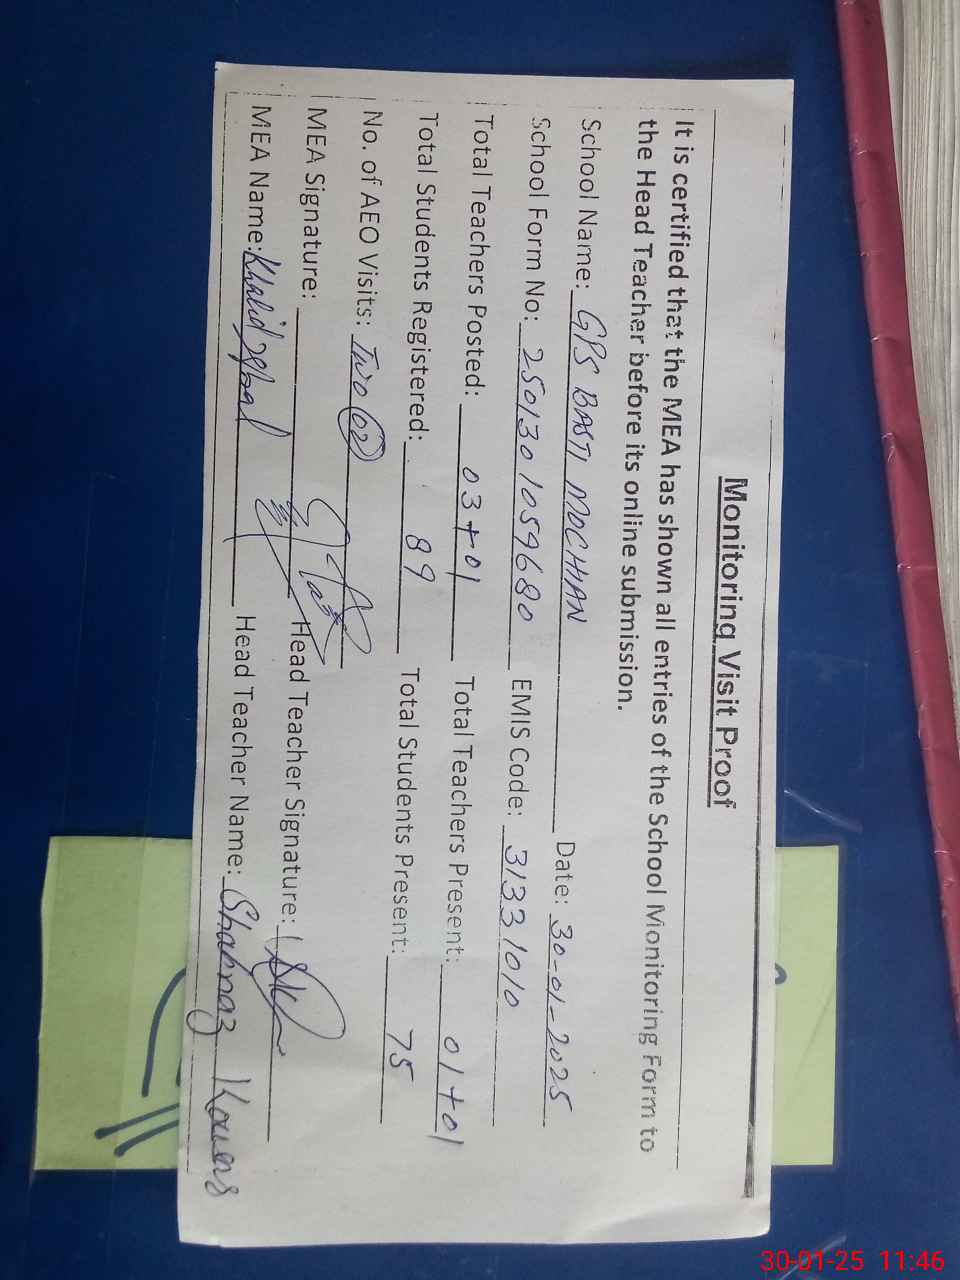 Monitoring Visit Proof
It is certified that the MEA has shown all entries of the School Monitoring Form to
the Head Teacher before its online submission.
School Name: GPS BASTI MOCHIAN Date: 30-01-2025
School Form No: 250130 1059680 EMIS Code: 31331010
Total Teachers Posted: 03+01 Total Teachers Present: 01+01
Total Students Registered: 89 Total Students Present: 75
No. of AEO Visits: Two (02)
MEA Signature: Head Teacher Signature:
MEA Name: Khalid Iqbal Head Teacher Name: Shahnaz Kowers
30-01-25 11:46